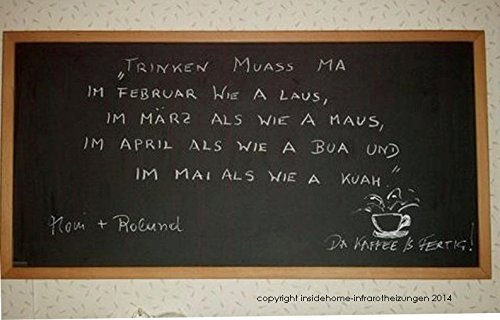 „TRINKEN MUASS MA
IM FEBRUAR WIE A LAUS,
IM MÄRZ ALS WIE A MAUS,
IM APRIL ALS WIE A BUA UND
IM MAI ALS WIE A KUAH."
+ Roland
DA KAFFEE IS FERTIG!
copyright insidehome-infrarotheizungen 2014